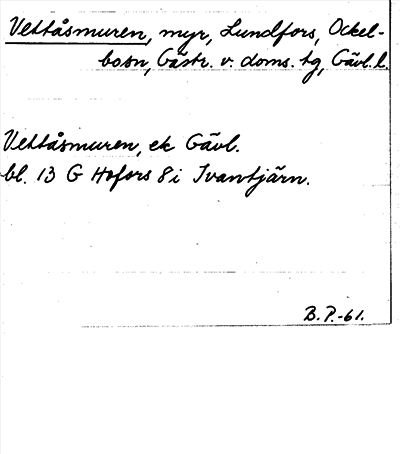 Vettåsmuren, myr, Lundfors, Ockel-
bosn, Gästr. v. doms. tg, Gävl. l.
Vettåsmuren, ek Gävl.
bl. 13 G Hofors 8 i Ivantjärn.
B. P. -61.